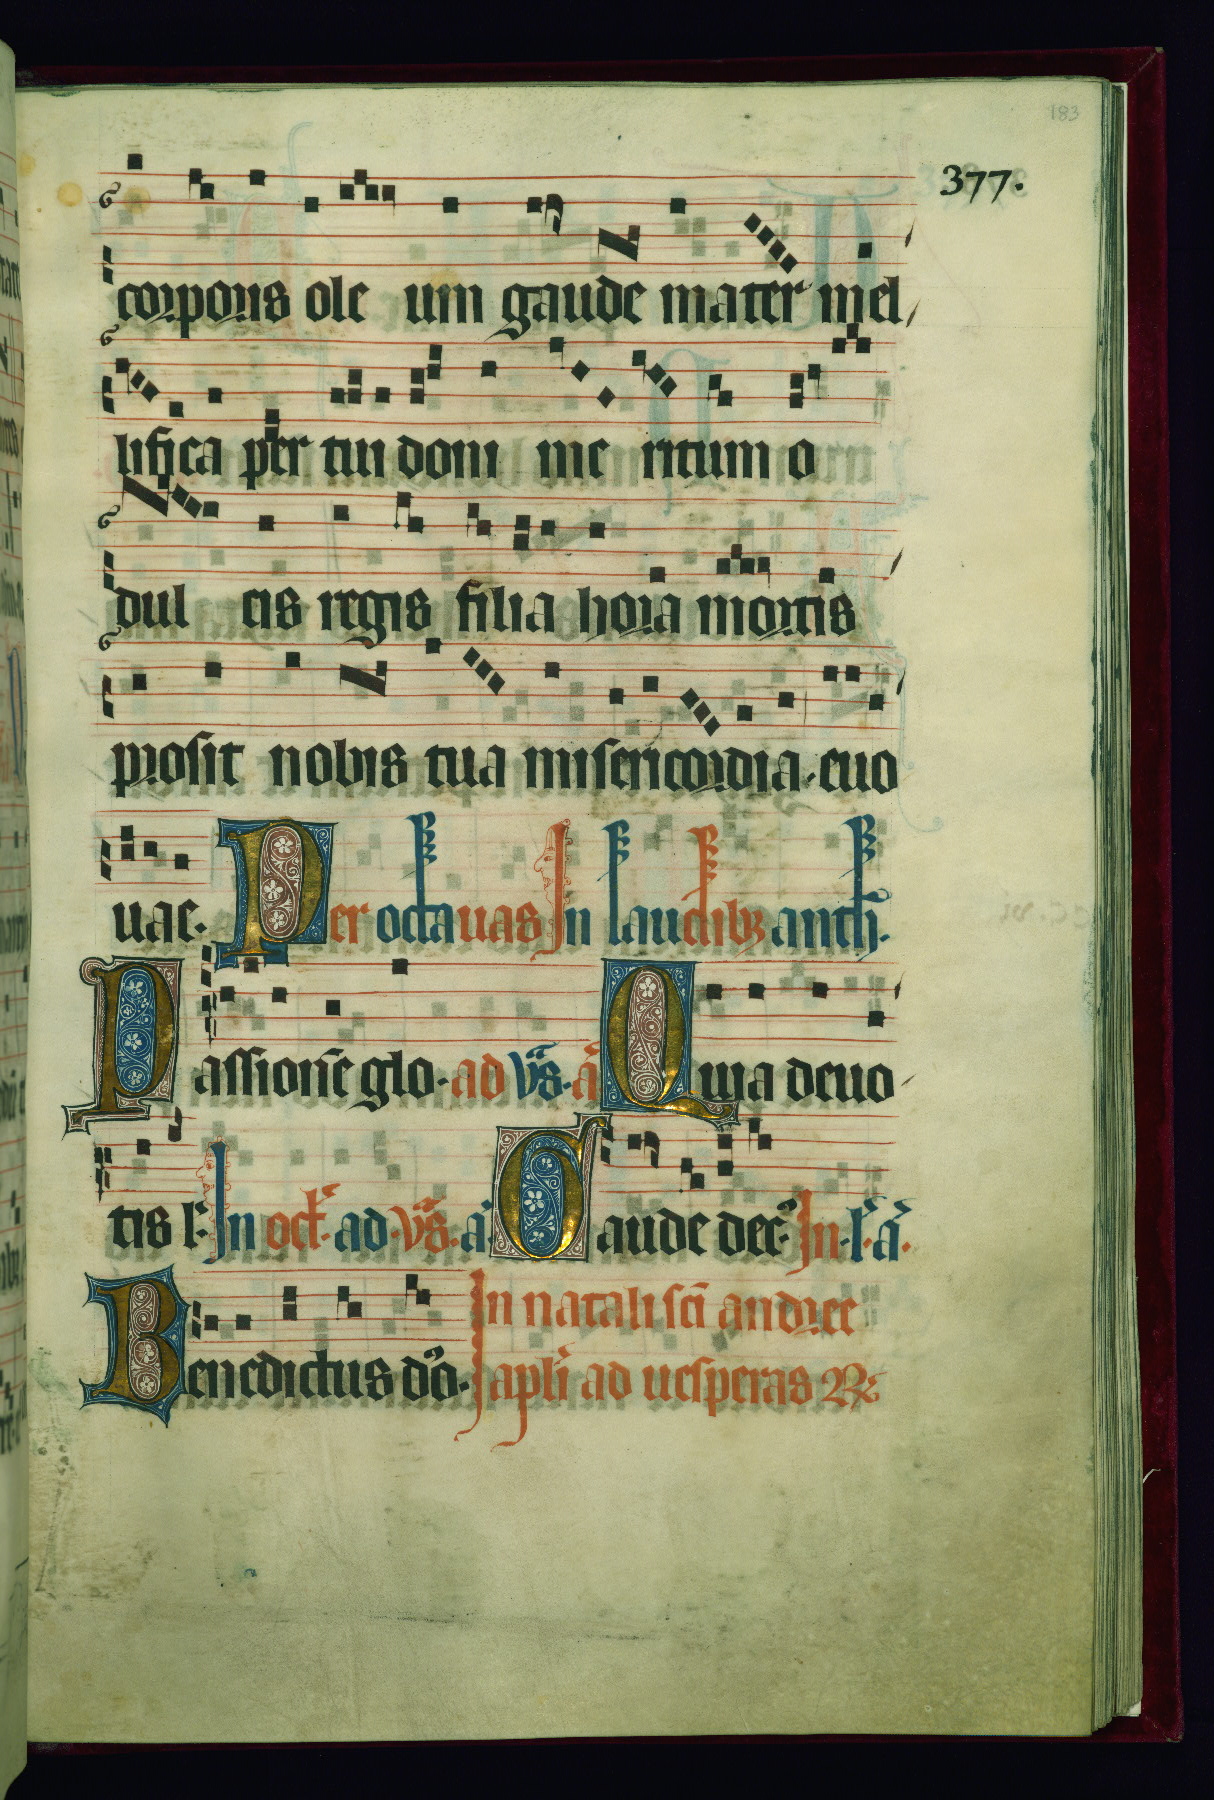 183
377.
corporis ole um gaude mater mel
lifica per tui doni me ritum o
dul cis regis filia hora mortis
prosit nobis tua misericordia. euo
uae. Per octauas In laudibꝫ anth̄.
Passionē glo. ad vs̄. ā Quia deuo
tis l. In oct̄. ad. vs̄. ā Gaude dec̄. In. l. ā.
Benedictus dō. In natali sc̄i andree
apl̄i ad uesperas R